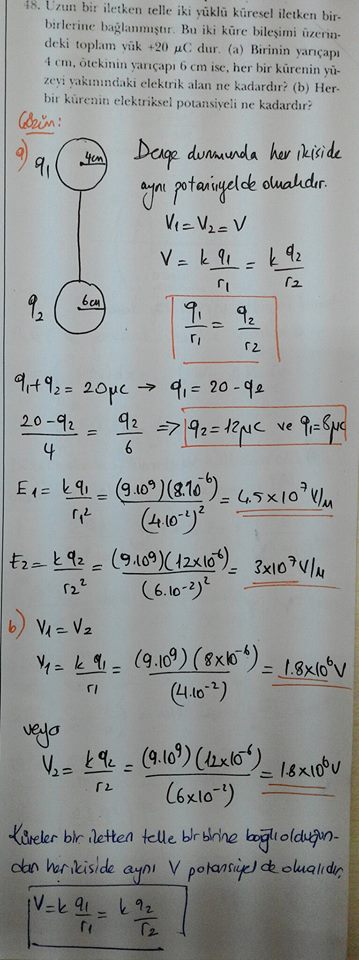 48. Uzun bir iletken telle iki yüklü küresel iletken bir-
birlerine bağlanmıştır. Bu iki küre bileşimi üzerin-
deki toplam yük +20 μC dur. (a) Birinin yarıçapı
4 cm, ötekinin yarıçapı 6 cm ise, her bir kürenin yü-
zeyi yakınındaki elektrik alan ne kadardır? (b) Her-
bir kürenin elektriksel potansiyeli ne kadardır?
Çözüm:
a) q₁ 4cm
Denge durumunda her ikiside
aynı potansiyelde olmalıdır.
V₁=V₂=V
V = k q₁/r₁ = k q₂/r₂
q₁/r₁ = q₂/r₂
q₂ 6cm
q₁+q₂ = 20μC → q₁ = 20 - q₂
(20-q₂)/4 = q₂/6 => q₂=12μC ve q₁=8μC
E₁= k q₁/r₁² = (9.10⁹)(8.10⁻⁶)/(4.10⁻²)² = 4.5x10⁷ V/m
E₂= k q₂/r₂² = (9.10⁹)(12x10⁻⁶)/(6.10⁻²)² = 3x10⁷ V/m
b) V₁=V₂
V₁= k q₁/r₁ = (9.10⁹)(8x10⁻⁶)/(4.10⁻²) = 1.8x10⁶V
veya
V₂= k q₂/r₂ = (9.10⁹)(12x10⁻⁶)/(6x10⁻²) = 1.8x10⁶V
Küreler bir iletken telle birbirine bağlı olduğun-
dan her ikiside aynı V potansiyelde olmalıdır.
V=k q₁/r₁ = k q₂/r₂